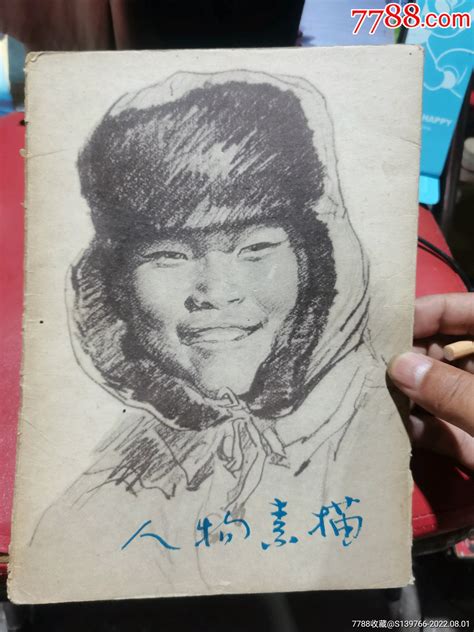 7788.com
HAPPY
人物素描
7788收藏@S139766-2022.08.01